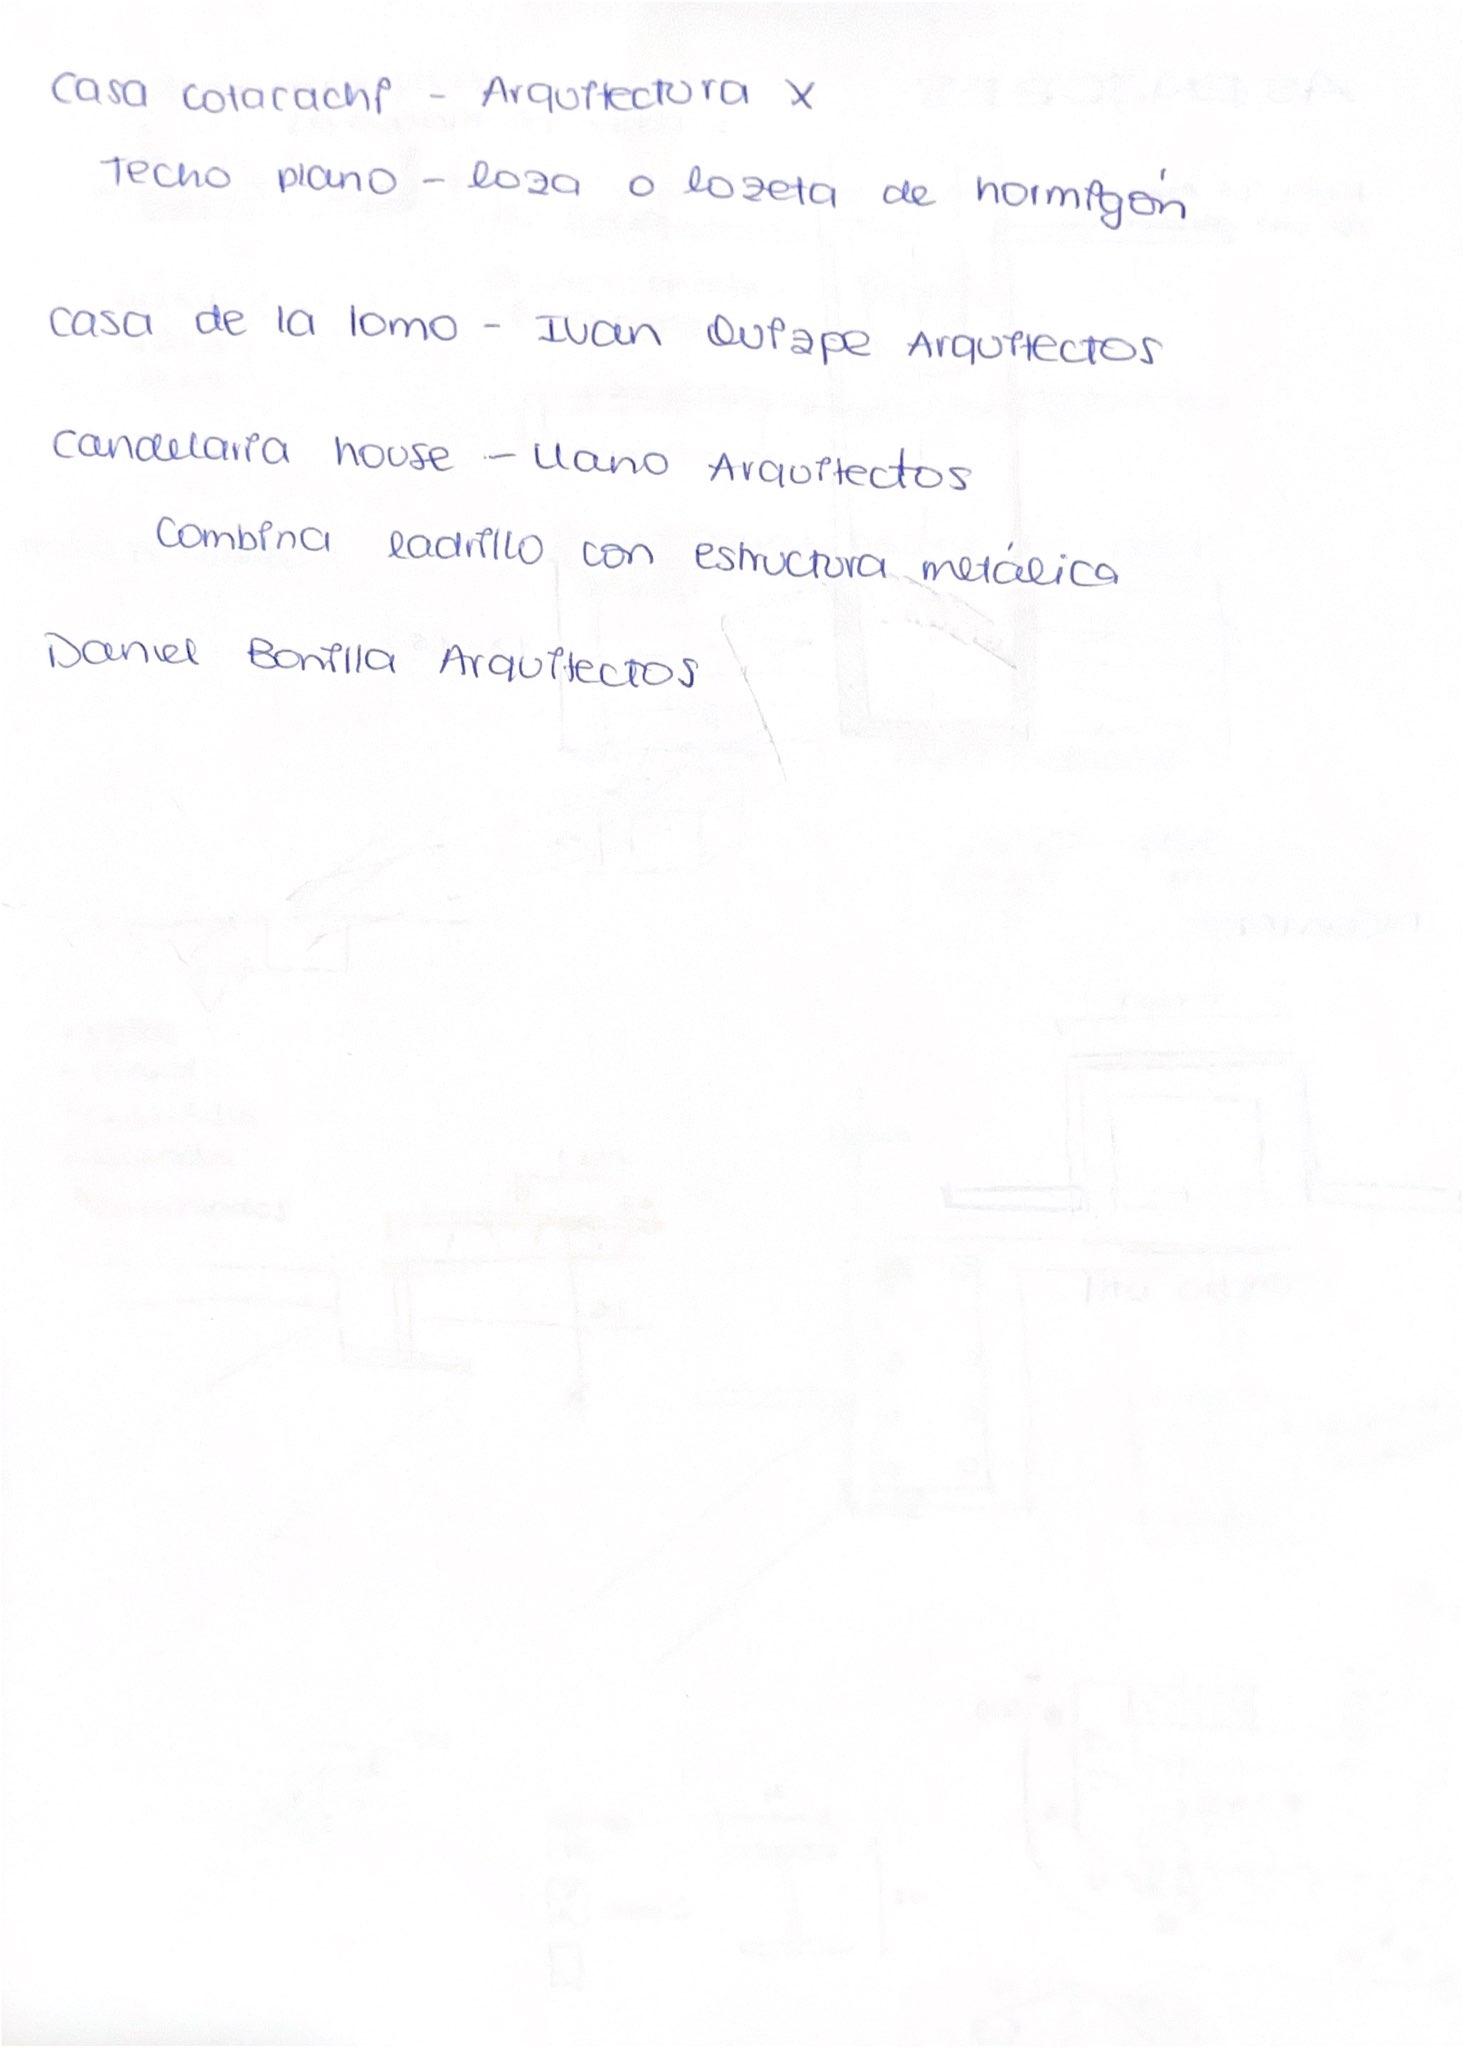 Casa Cotacachi - Arquitectura X
Techo plano - loza o lozeta de hormigón
Casa de la lomo - Ivan Quizpe Arquitectos
Candelaria house - Llano Arquitectos
Combina ladrillo con estructura metálica
Daniel Bonilla Arquitectos